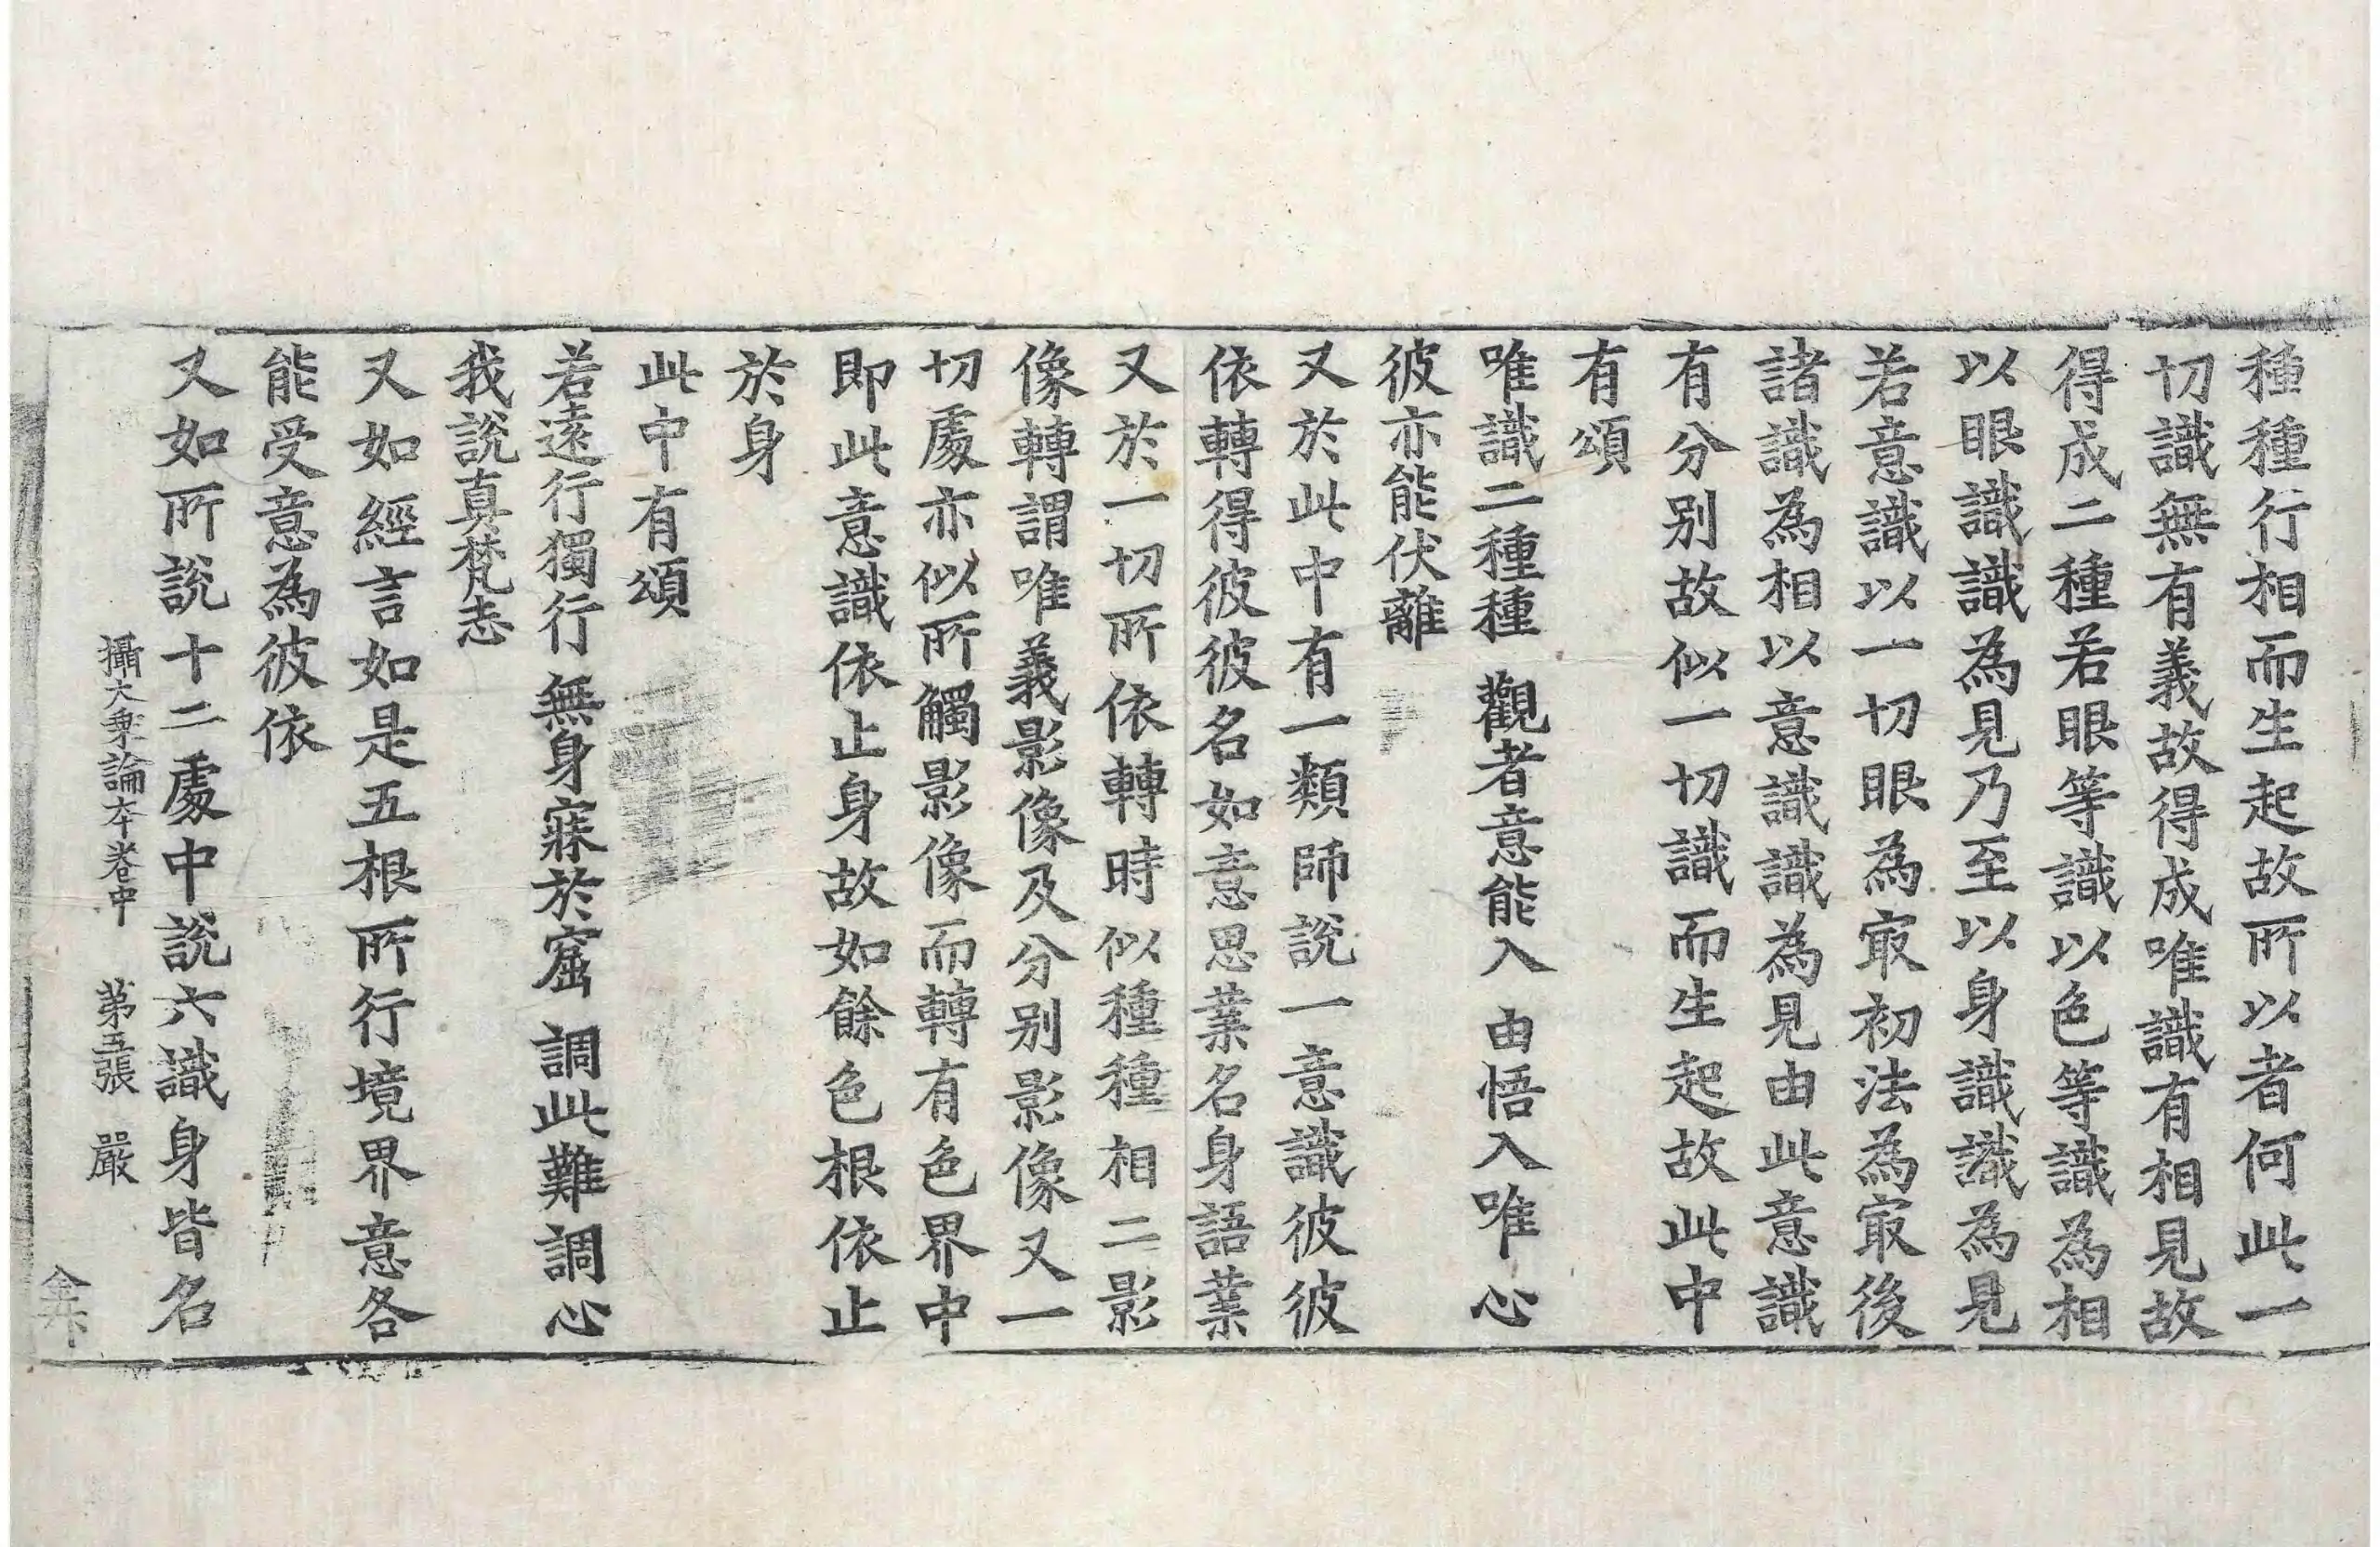 種種行相而生起故所以者何此一
切識無有義故得成唯識有相見故
得成二種若眼等識以色等識為相
以眼識識為見乃至以身識識為見
若意識以一切眼為㝡初法為㝡後
諸識為相以意識識為見由此意識
有分别故似一切識而生起故此中
有頌
唯識二種種 觀者意能入 由悟入唯心
彼亦能伏離
又於此中有一類師說一意識彼彼
依轉得彼彼名如意思業名身語業
又於一切所依轉時似種種相二影
像轉謂唯義影像及分别影像又一
切處亦似所觸影像而轉有色界中
即此意識依止身故如餘色根依止
於身
此中有頌
若遠行獨行 無身寐於窟 調此難調心
我說真梵志
又如經言如是五根所行境界意各
能受意為彼依
又如所說十二處中說六識身皆名
攝大乗論本卷中 第五張 嚴